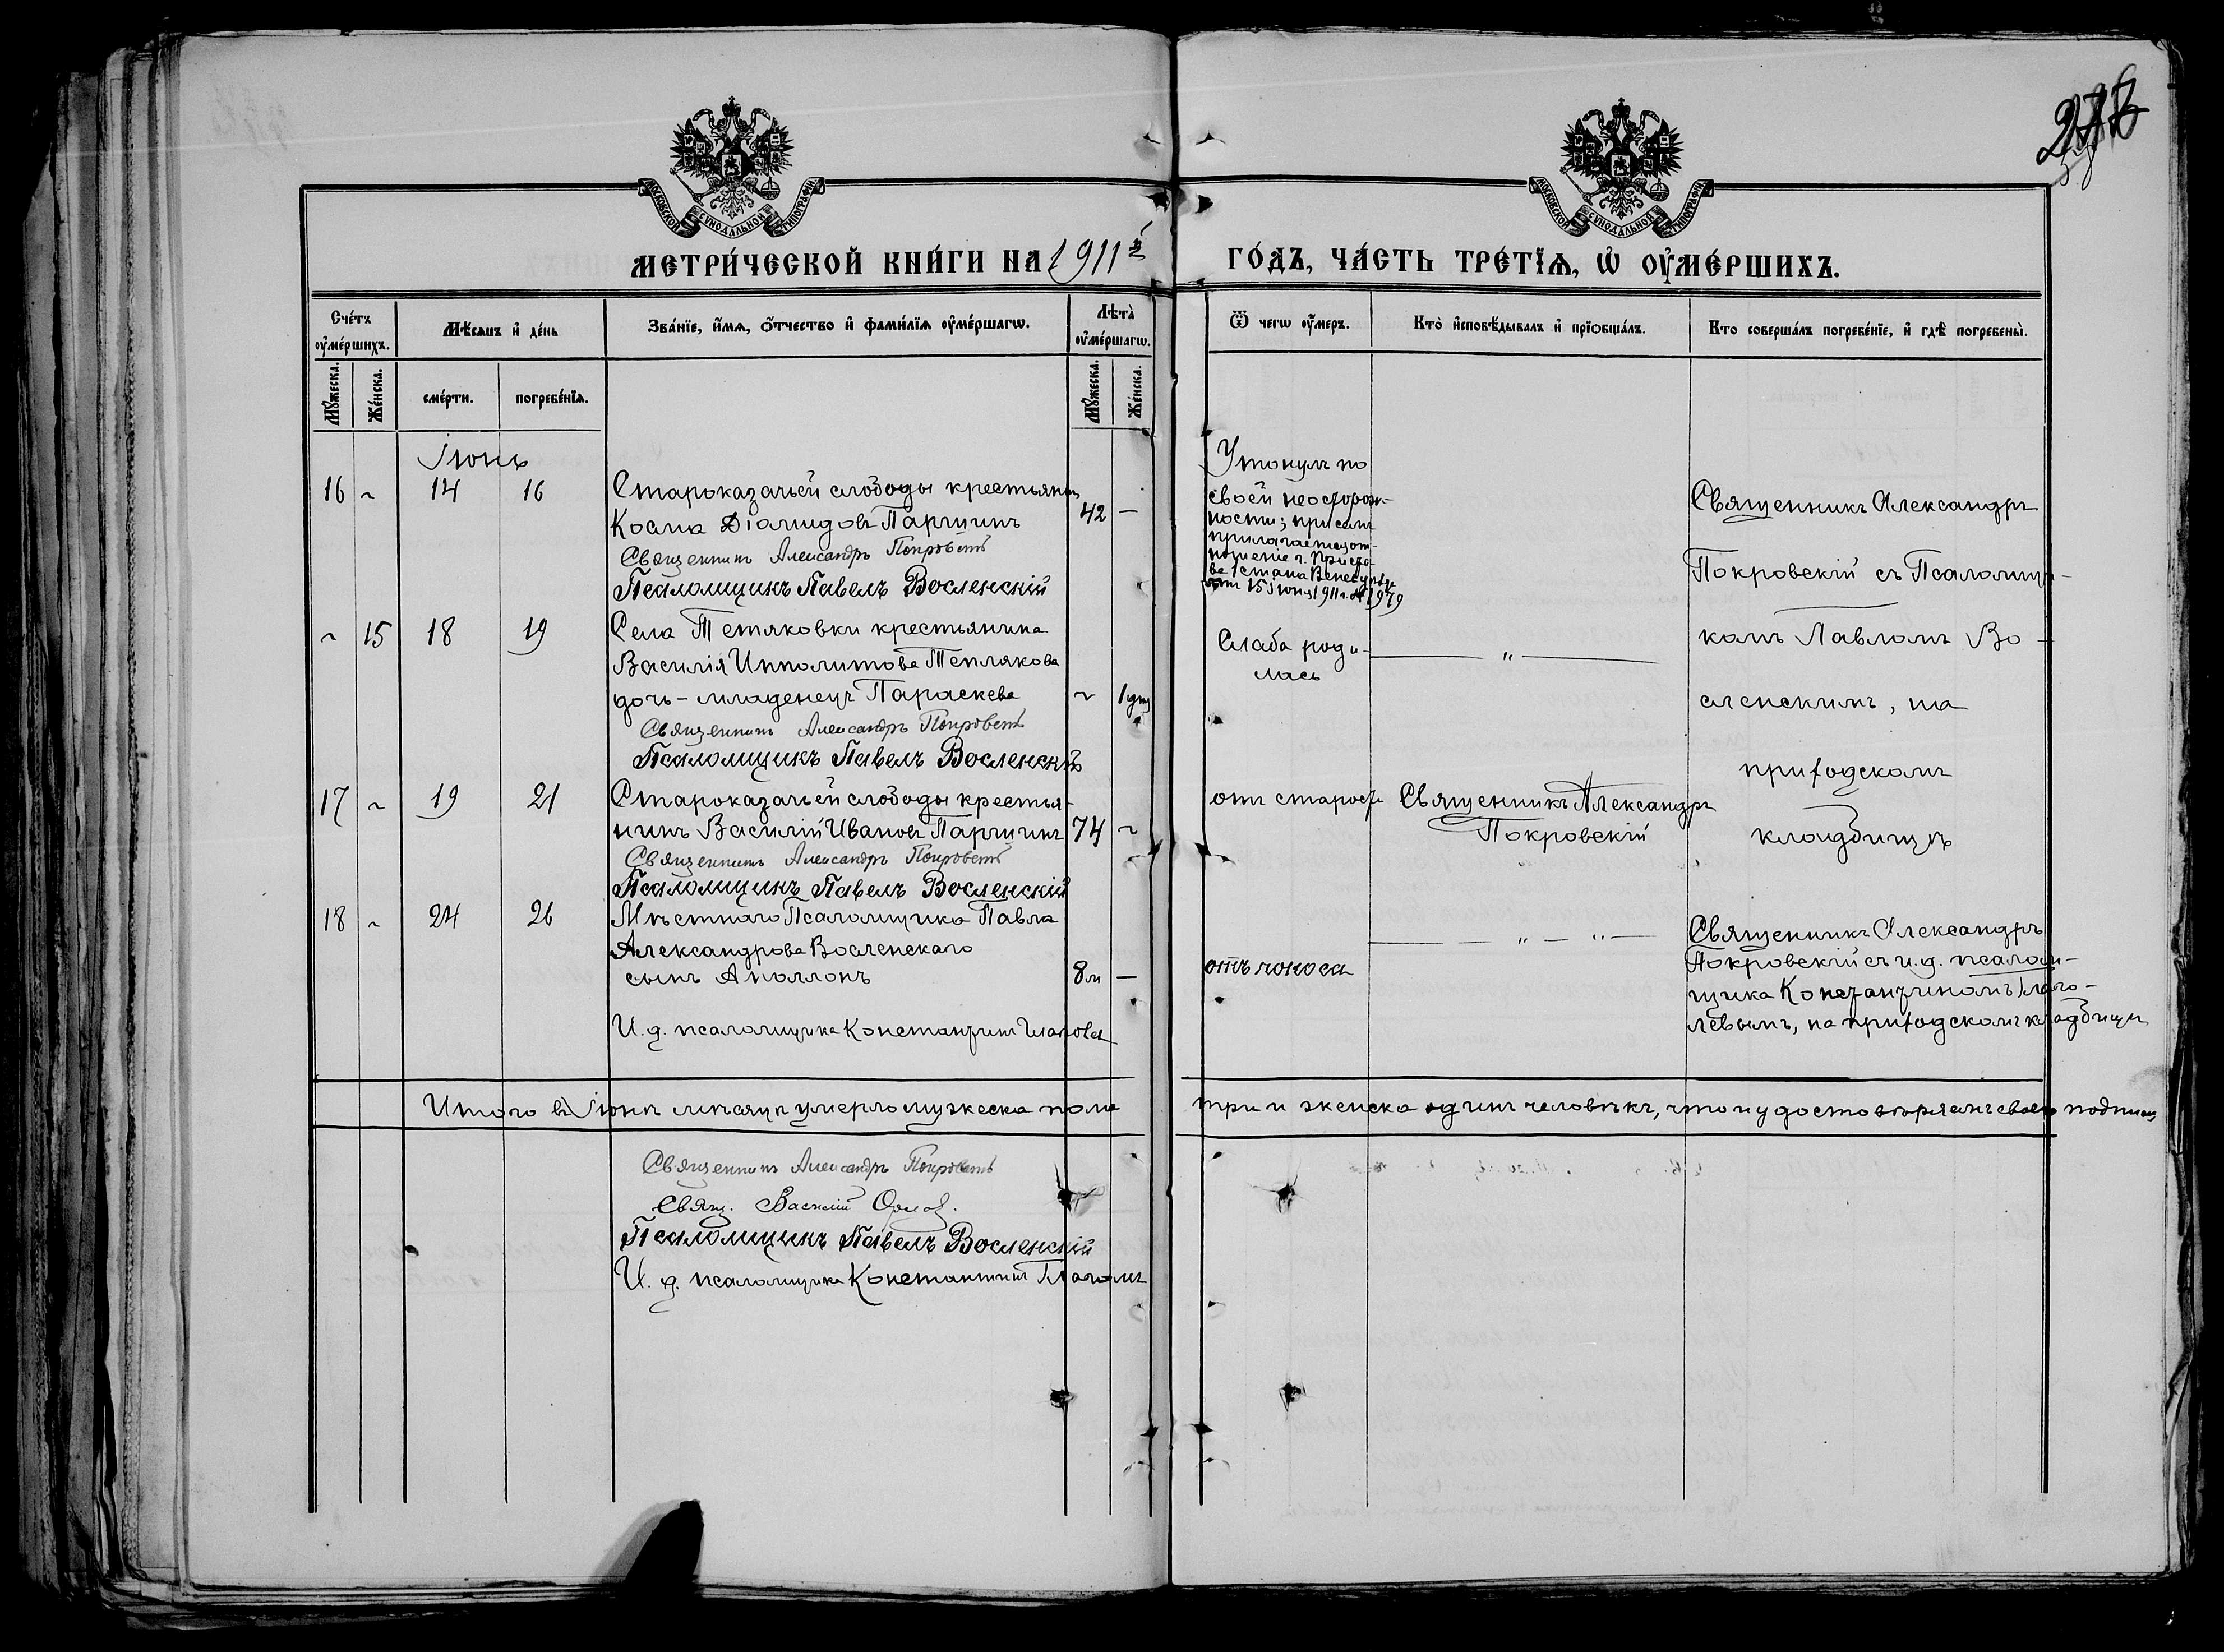 МОСКОВСКОЙ СѴНОДАЛЬНОЙ ТИПОГРАФІИ.
МОСКОВСКОЙ СѴНОДАЛЬНОЙ ТИПОГРАФІИ.
МЕТРИ́ЧЕСКОЙ КНИ́ГИ НА 1911й ГО́ДЪ, ЧА́СТЬ ТРЕ́ТЇѦ, Ѡ҆ ОУ҆МЕ́РШИХЪ.
Сче́тъ оу҆ме́ршихъ.
Мѣ́сяцъ и҆ де́нь
Зва́нїе, и҆́мѧ, ѻ҆́тчество и҆ фами́лїѧ оу҆ме́ршагѡ.
Лѣта̀ оу҆ме́ршагѡ.
Ѿ чегѡ̀ оу҆́меръ.
Кто̀ и҆сповѣ́дывалъ и҆ прїѡбща́лъ.
Кто̀ соверша́лъ погребе́нїе, и҆ гдѣ̀ погребены̀.
Мꙋ́жеска.
Же́нска.
сме́рти.
погребе́нїѧ.
Мꙋ́жеска.
Же́нска.
Іюнь
16 ~ 14 16
Староказачьей слободы крестьянинъ
Косма Діамидовъ Паршинъ 42 —
Священникъ Александръ Покровскій
Псаломщикъ Павелъ Восленскій
Утонулъ по
своей неосторож-
ности; при семъ
прилагается от-
ношеніе г. Приста-
ва 1 стана
отъ 15 Іюня 1911 г. № 1979
Священникъ Александръ
Покровскій съ Псаломщи-
комъ Павломъ Во-
сленскимъ, на
приходскомъ
кладбищѣ
~ 15 18 19
Села Тетяковки крестьянина
Василія Ипполитова Теплякова
дочь - младенецъ Параскева ~ 1 дня
Священникъ Александръ Покровскій
Псаломщикъ Павелъ Восленскій
Слаба роди-
лась
— " —
17 ~ 19 21
Староказачьей слободы крестья-
нинъ Василій Ивановъ Паршинъ 74 ~
Священникъ Александръ Покровскій
Псаломщикъ Павелъ Восленскій
отъ старости
Священникъ Александръ
Покровскій
18 ~ 24 26
Мѣстнаго Псаломщика Павла
Александрова Восленскаго
сынъ Аполлонъ 8 м —
И. д. псаломщика Константинъ Глаголев
отъ поноса
— — " — " —
Священникъ Александръ
Покровскій съ и. д. псалом-
щика Константиномъ Глаго-
левымъ, на приходскомъ кладбищѣ
Итого въ Іюнѣ мѣсяцѣ умерло мужеска пола три и женска одинъ человѣкъ, что и удостовѣряемъ своею подписью
Священникъ Александръ Покровскій
Свящ. Василій Орлов.
Псаломщикъ Павелъ Восленскій
И. д. псаломщика Константинъ Глаголевъ